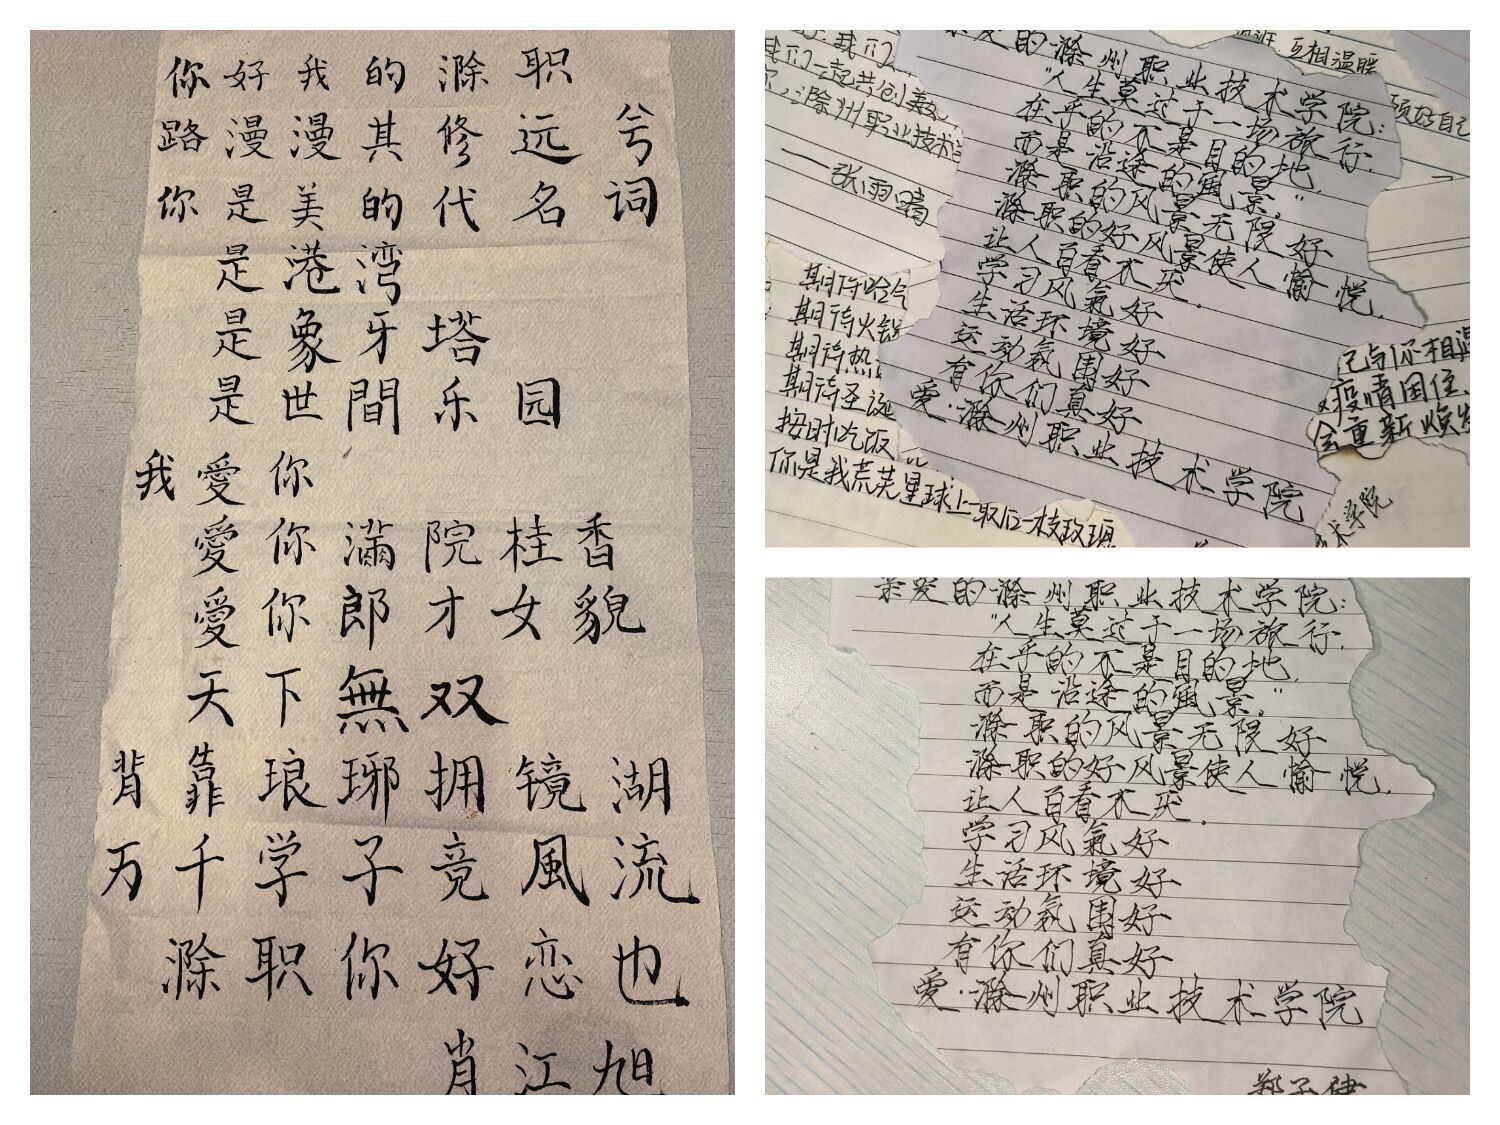 你好我的滁职
路漫漫其修远兮
你是美的代名词
是港湾
是象牙塔
是世間乐园
我愛你
愛你滿院桂香
愛你郎才女貌
天下無双
背靠琅琊拥镜湖
万千学子竞風流
滁职你好恋也
肖江旭
互相温暖
我们一起共创美
滁州职业技术
张雨晴
期待哈
期待火锅
期待热
期待圣诞
按时吃饭
你是我荒芜星球上一取后一枝玫瑰
顾好自己
己与你相遇
疫情困住
会重新焕发
术学院
亲爱的滁州职业技术学院:
"人生莫过于一场旅行,
在乎的不是目的地,
而是沿途的風景。"
滁职的风景无限好
滁职的好风景使人愉悦,
让人百看不厌.
学习风氣好
生活环境好
运动氛围好
有你们真好
爱·滁州职业技术学院
亲爱的滁州职业技术学院:
"人生莫过于一场旅行,
在乎的不是目的地,
而是沿途的風景。"
滁职的风景无限好
滁职的好风景使人愉悦,
让人百看不厌.
学习风氣好
生活环境好
运动氛围好
有你们真好
爱·滁州职业技术学院
郑子健